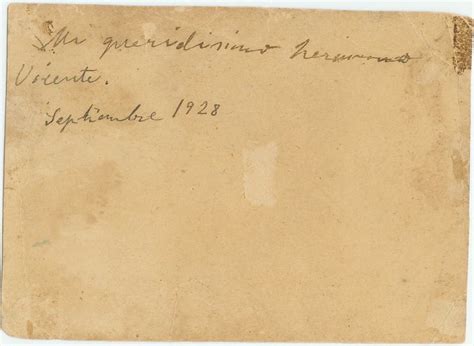 Mi queridisimo hermano
Vicente.
Septiembre 1928